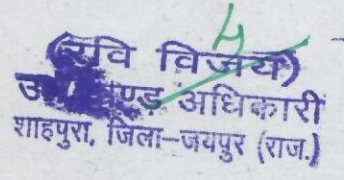 (रवि विजय)
अधिकारी
शाहपुरा, जिला-जयपुर (राज.)